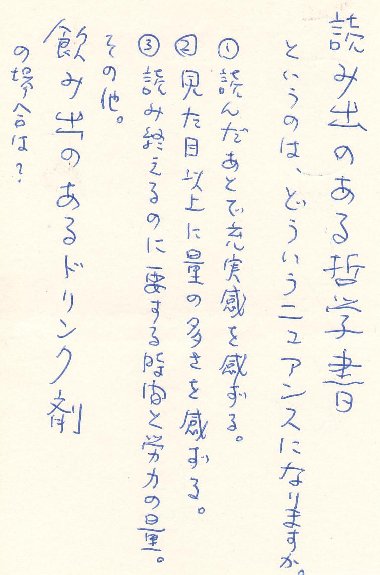 読み出のある哲学書
というのは、どういうニュアンスになりますか。
①読んだあとで充実感を感ずる。
②見た目以上に量の多さを感ずる。
③読み終えるのに要する時間と労力の量。
その他。
飲み出のあるドリンク剤
の場合は？